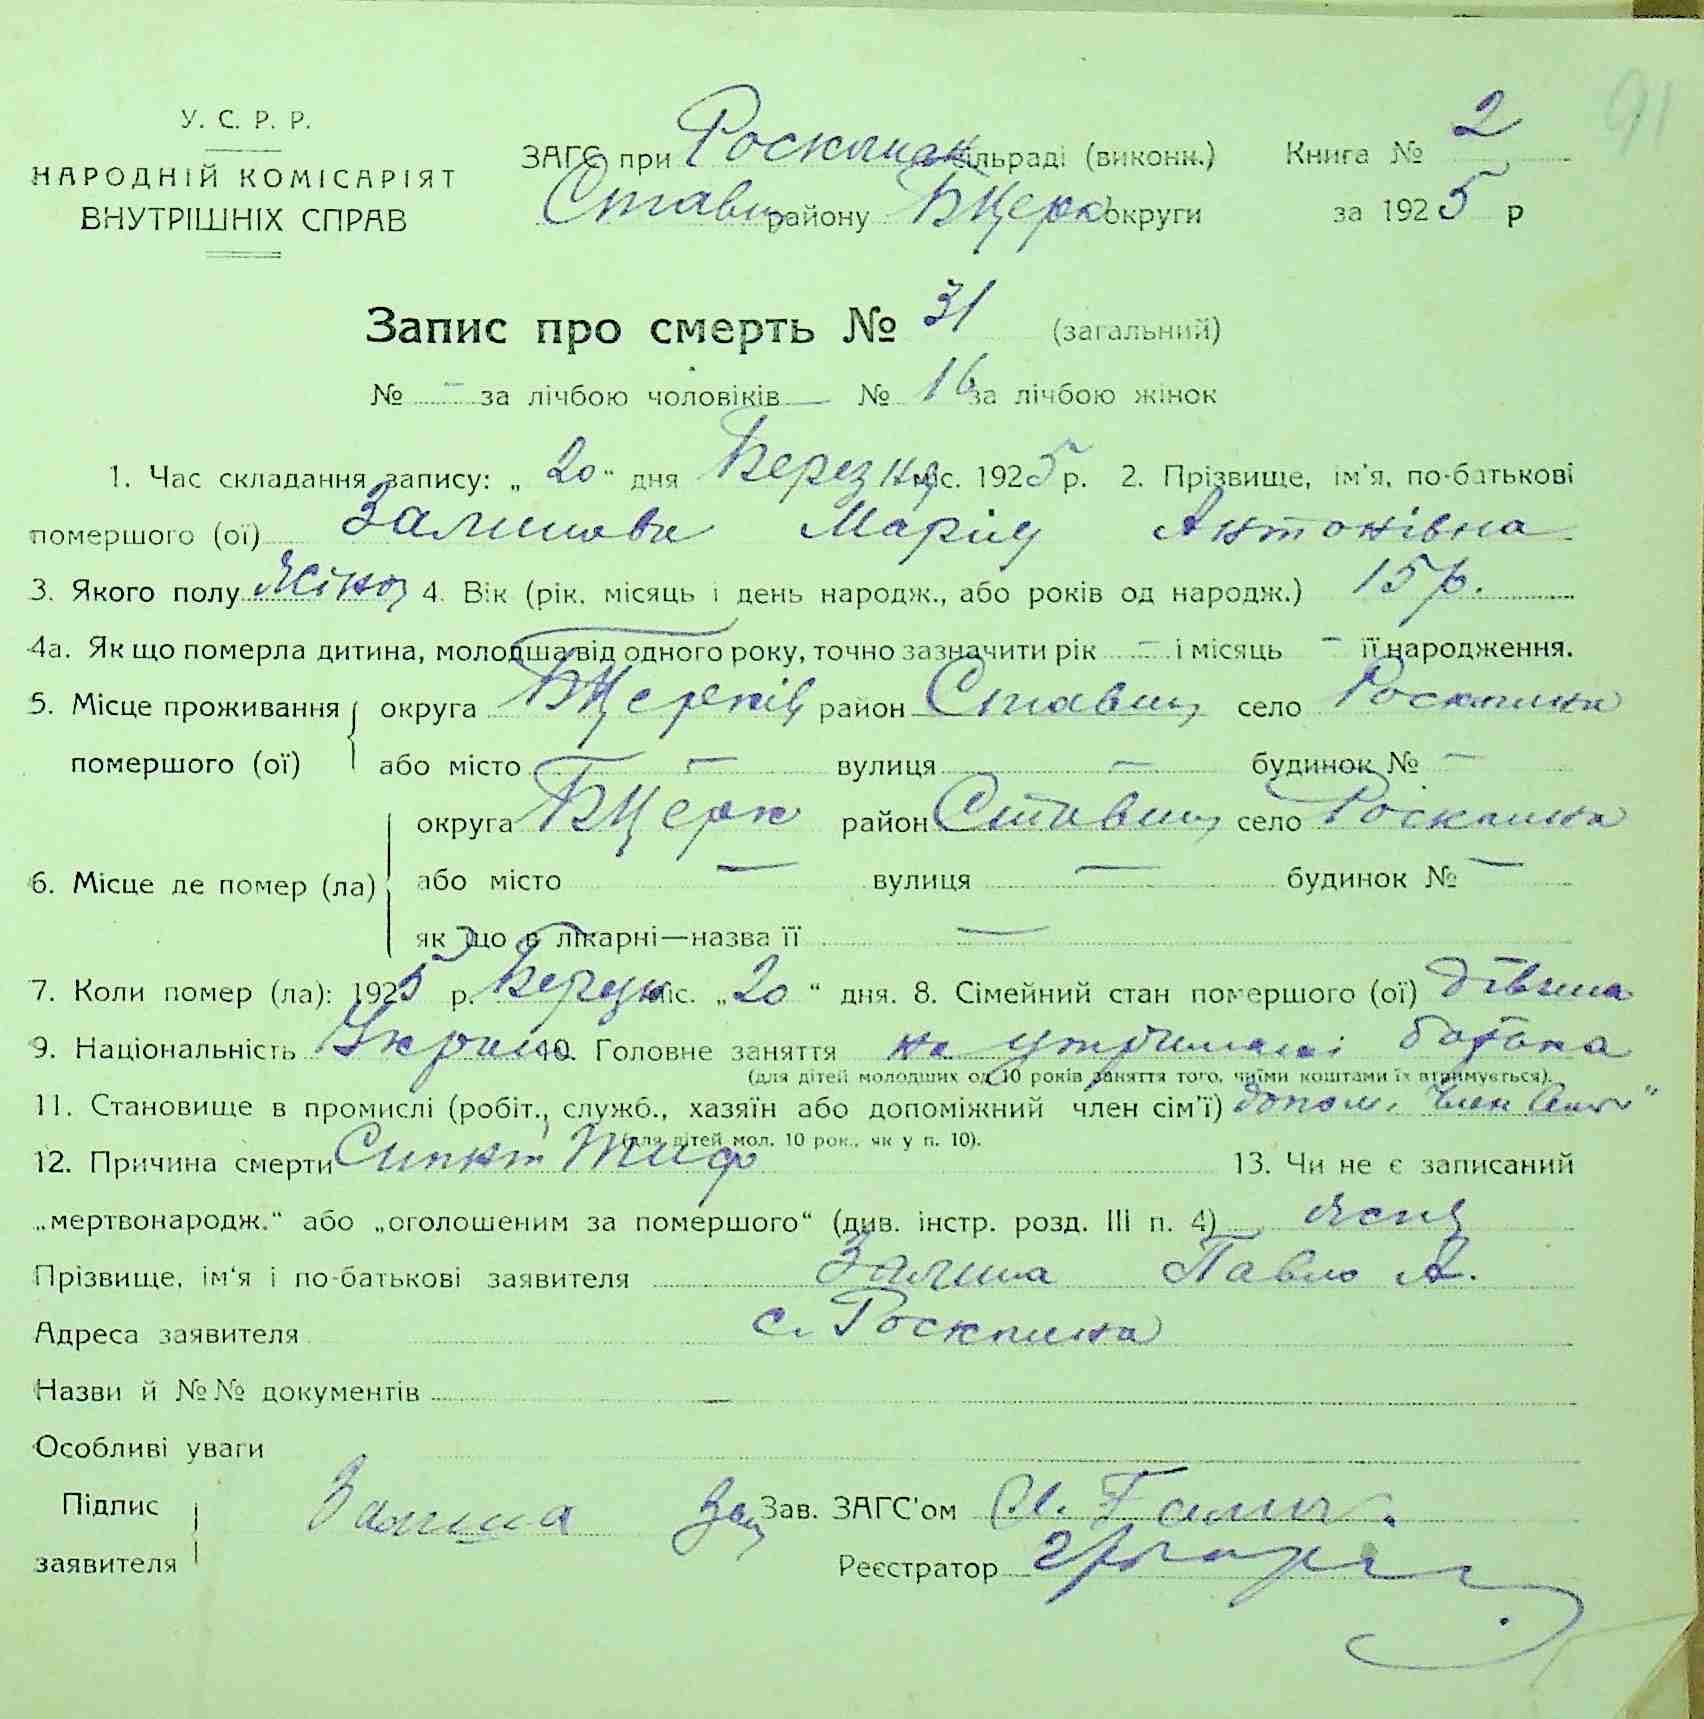 91
У. С. Р. Р.
НАРОДНІЙ КОМІСАРІЯТ
ВНУТРІШНІХ СПРАВ
ЗАГС при Роскішн сільраді (виконк.) Книга № 2
Ставищ району БЦерк округи за 1925 р
Запис про смерть № 31 (загальний)
№ — за лічбою чоловіків — № 16 за лічбою жінок
1. Час складання запису: „ 20 “ дня Березня міс. 1925 р. 2. Прізвище, ім'я, по-батькові
помершого (ої) Марія Антонівна
3. Якого полу Жіноч 4. Вік (рік, місяць і день народж., або років од народж.) 15 р.
4а. Як що померла дитина, молодша від одного року, точно зазначити рік — і місяць — її народження.
5. Місце проживання округа БЦерків район Ставищ село
помершого (ої) або місто — вулиця — будинок № —
округа БЦерк район Ставищ село
6. Місце де помер (ла) або місто — вулиця — будинок № —
як що в лікарні—назва її —
7. Коли помер (ла): 1925 р. Березн міс. „ 20 “ дня. 8. Сімейний стан помершого (ої) дівчина
9. Національність Україн 10. Головне заняття на утриманні батька
(для дітей молодших од 10 років заняття того, чиїми коштами їх втримується).
11. Становище в промислі (робіт., служб., хазяїн або допоміжний член сім'ї) допом. член сем'ї
(для дітей мол. 10 рок., як у п. 10).
12. Причина смерти Сипн Тиф 13. Чи не є записаний
„мертвонародж.“ або „оголошеним за помершого“ (див. інстр. розд. III п. 4)
Прізвище, ім'я і по-батькові заявителя Павло А.
Адреса заявителя с.
Назви й №№ документів —
Особливі уваги
Підпис Зав. ЗАГС'ом
заявителя Реєстратор